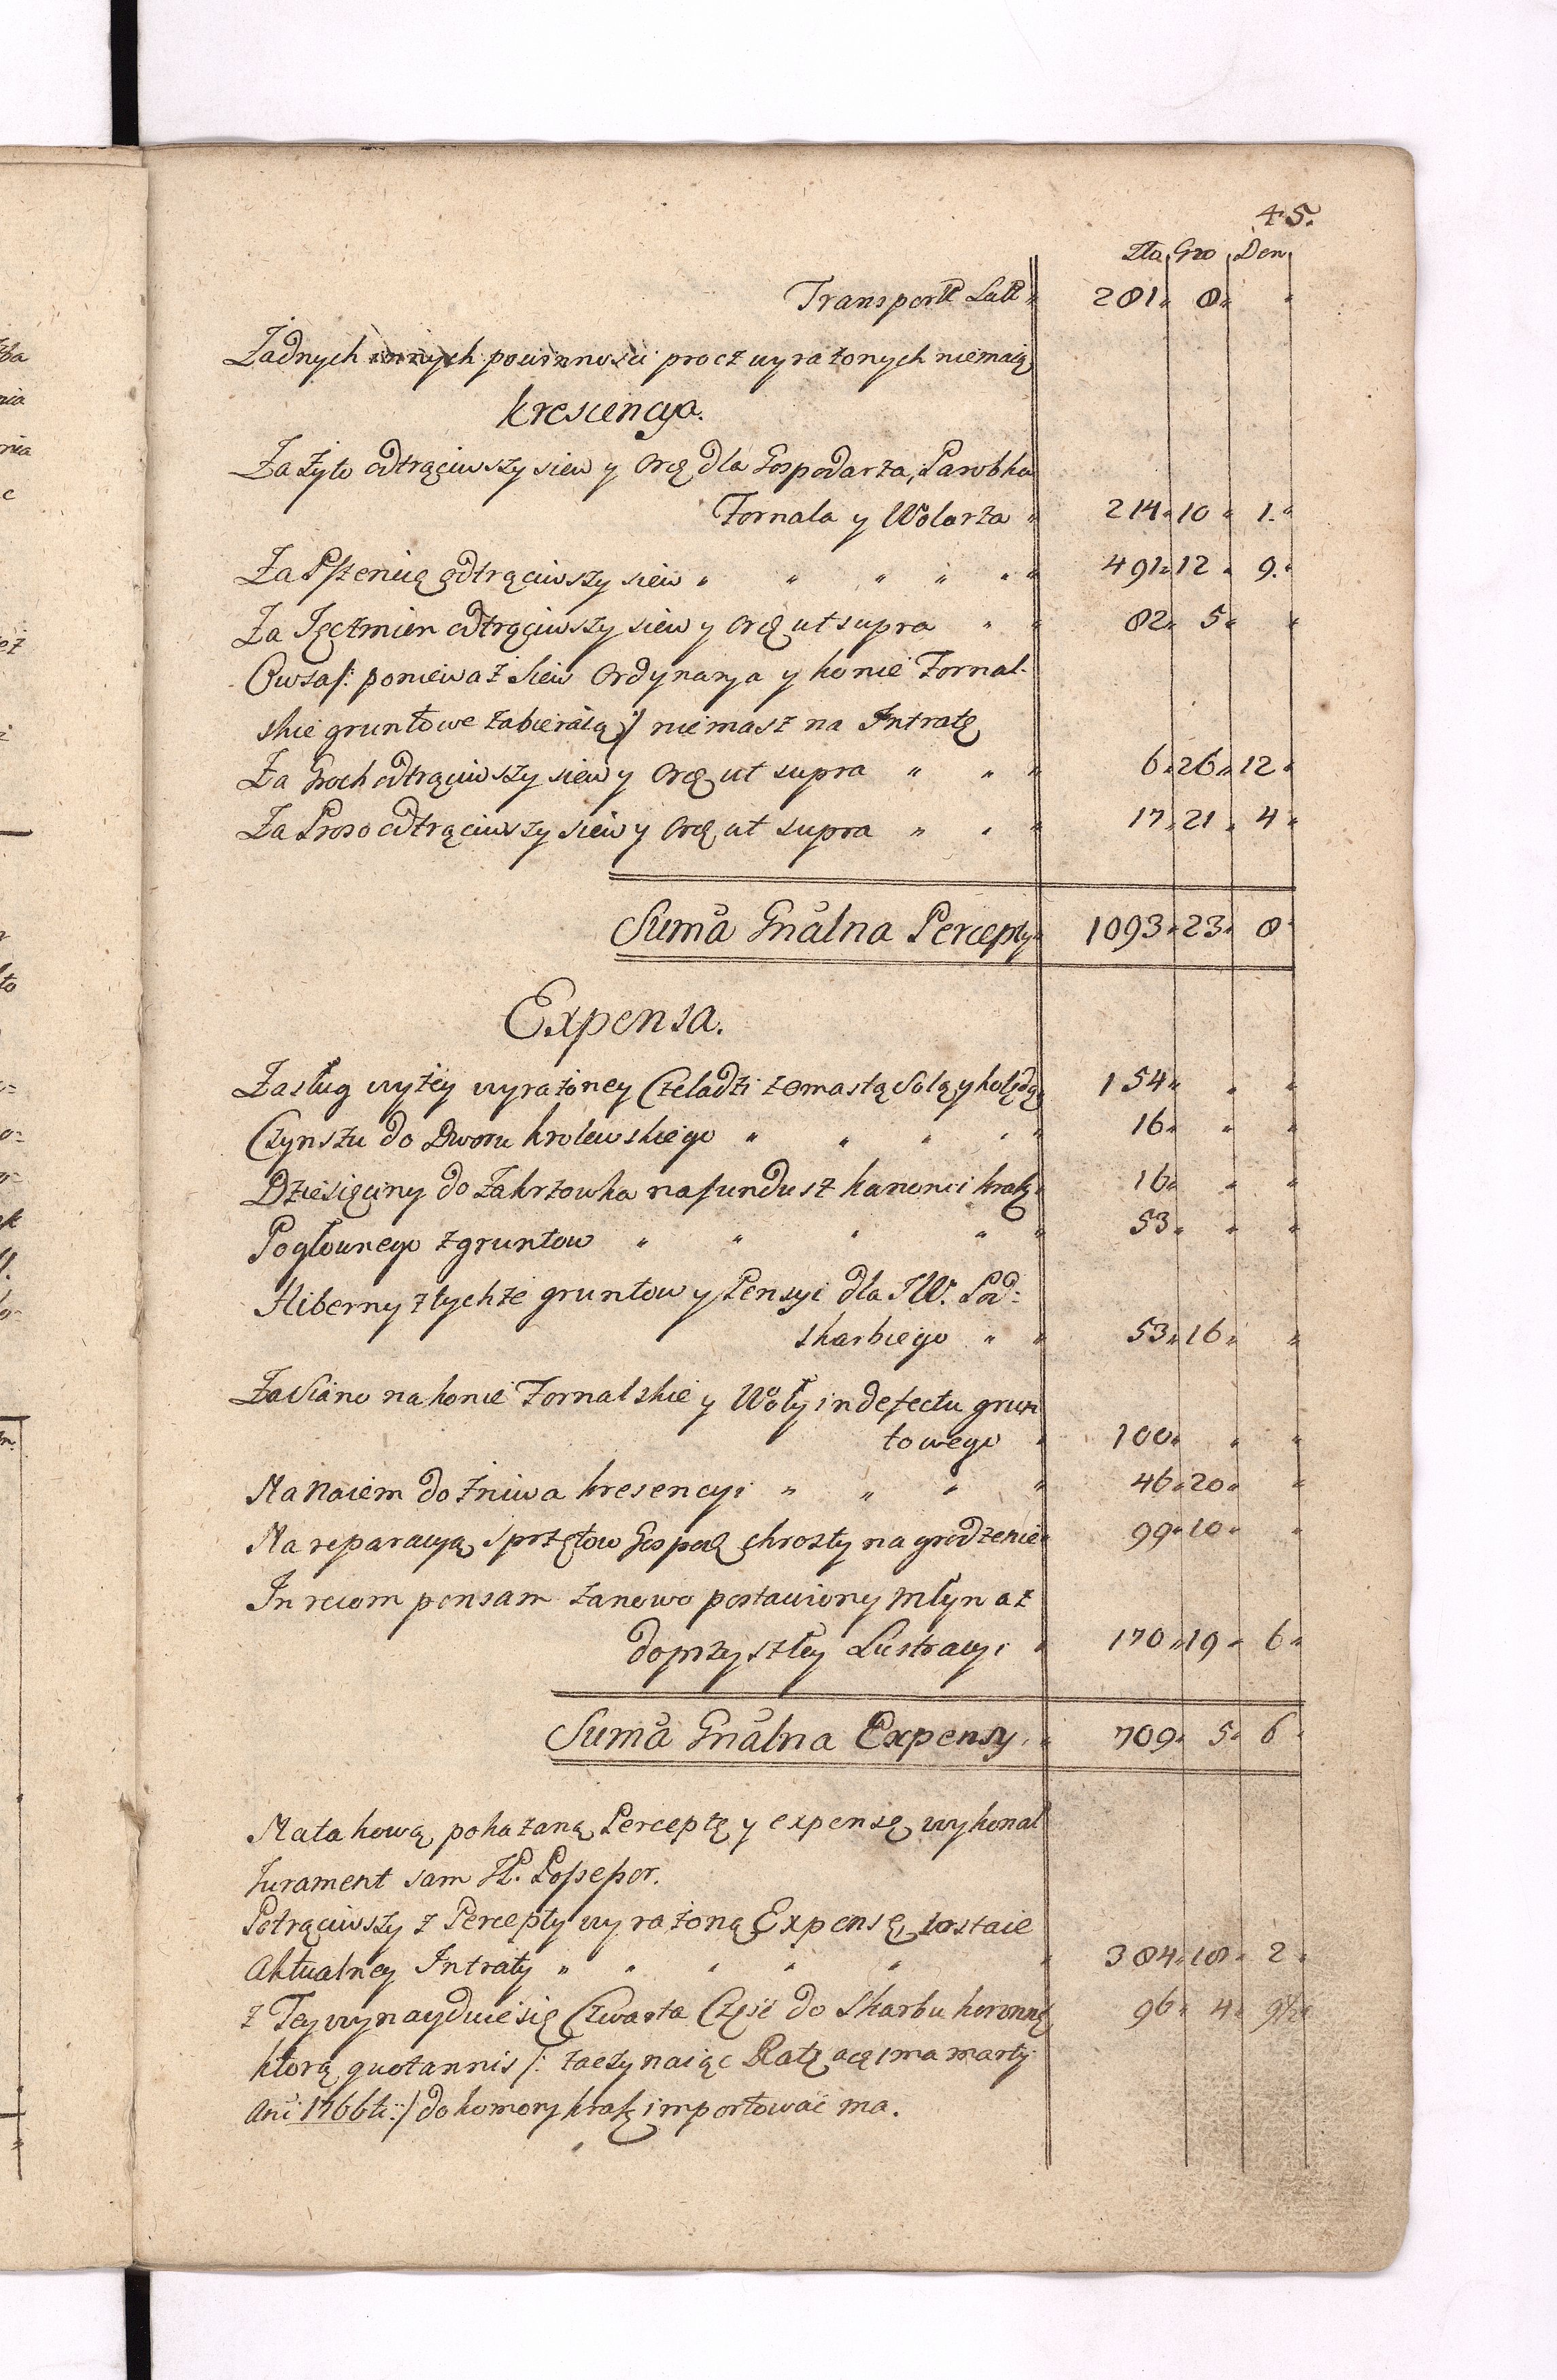 45.
Zło Gro Den
Transport Latt 281 8
Żadnych innych powinnosci procz wyrażonych niemaią
Krescencya.
Za Żyto odtrąciwszy siew y Ord dla Gospodarza, Parobka
Fornala y Wolarza 214 10 1.
Za Pszenicę odtrąciwszy siew 491 12 9.
Za Jęczmien odtrąciwszy siew y Ord ut supra 82 5
Owsa /: poniewaz siew Ordynarya y konie Fornal-
skie gruntowe zabieraią :/ niemasz na Intratę
Za Groch odtrąciwszy siew y Ord ut supra 6 26 12
Za Proso odtrąciwszy siew y Ord ut supra 17 21 4
Suma Gnalna Percepty 1093 23 8
Expensa.
Zasług wyżey wyrażoney Czeladzi z Omastą Solą y kolędą 154
Czynszu do Dworu Krolewskiego 16
Dziesięciny do Zakrzowka na fundusz kanonii krak 16
Pogłownego z gruntow 53
Hiberny z tychże gruntow y Pensyi dla JW. Pod-
skarbiego 53 16
Za Siano na konie Fornalskie y Woły in defectu grun
towego 100
Na Naiem do żniwa kresencyi 46 20
Na reparacyą sprzętow Gospod chrosty na grodzenie 99 10
In recompensam zanowo postawiony młyn az
do przyszłey Lustracyi 170 19 6
Suma Gnalna Expensy 709 5 6
Na takową pokazaną Perceptę y expensę wykonał
Jurament sam JP. Possessor.
Potrąciwszy z Percepty wyrażoną Expensę, zostaie
Aktualney Intraty 384 18 2
z Tey wynayduie się Czwarta Częsć do Skarbu koronng 96 4 9½
ktorą quotannis /: zaczynaiąc Ratę a 1ma marty
Ani 1766ti :/ do komory krak importować ma.